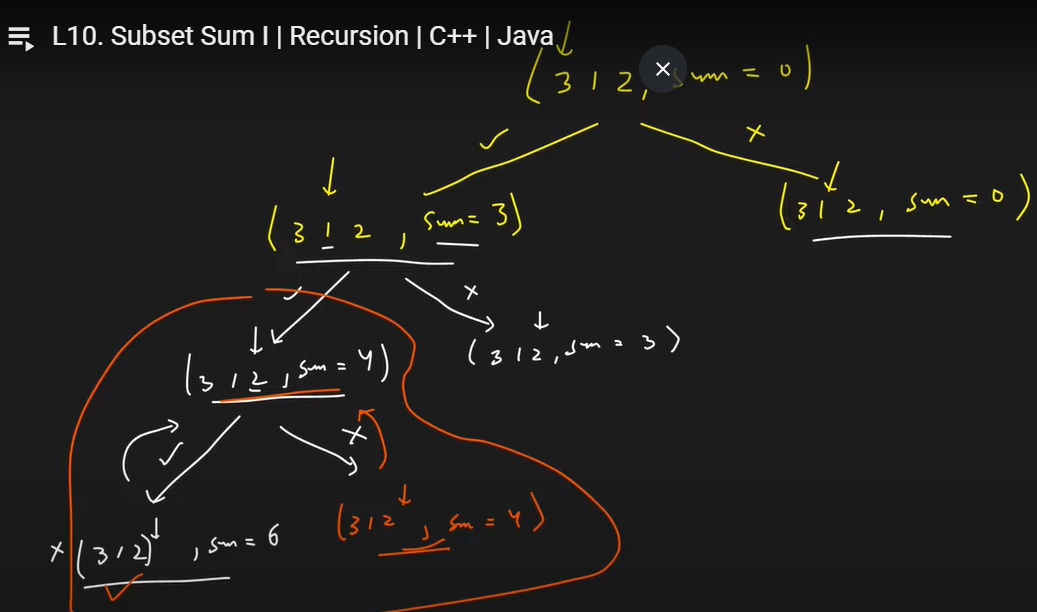 L10. Subset Sum I | Recursion | C++ | Java
(3 1 2, sum = 0)
✓ ×
(3 1 2, sum = 3)
(3 1 2, sum = 0)
✓ ×
(3 1 2, sum = 4)
(3 1 2, sum = 3)
✓ ×
× (3 1 2), sum = 6
(3 1 2, sm = 4)